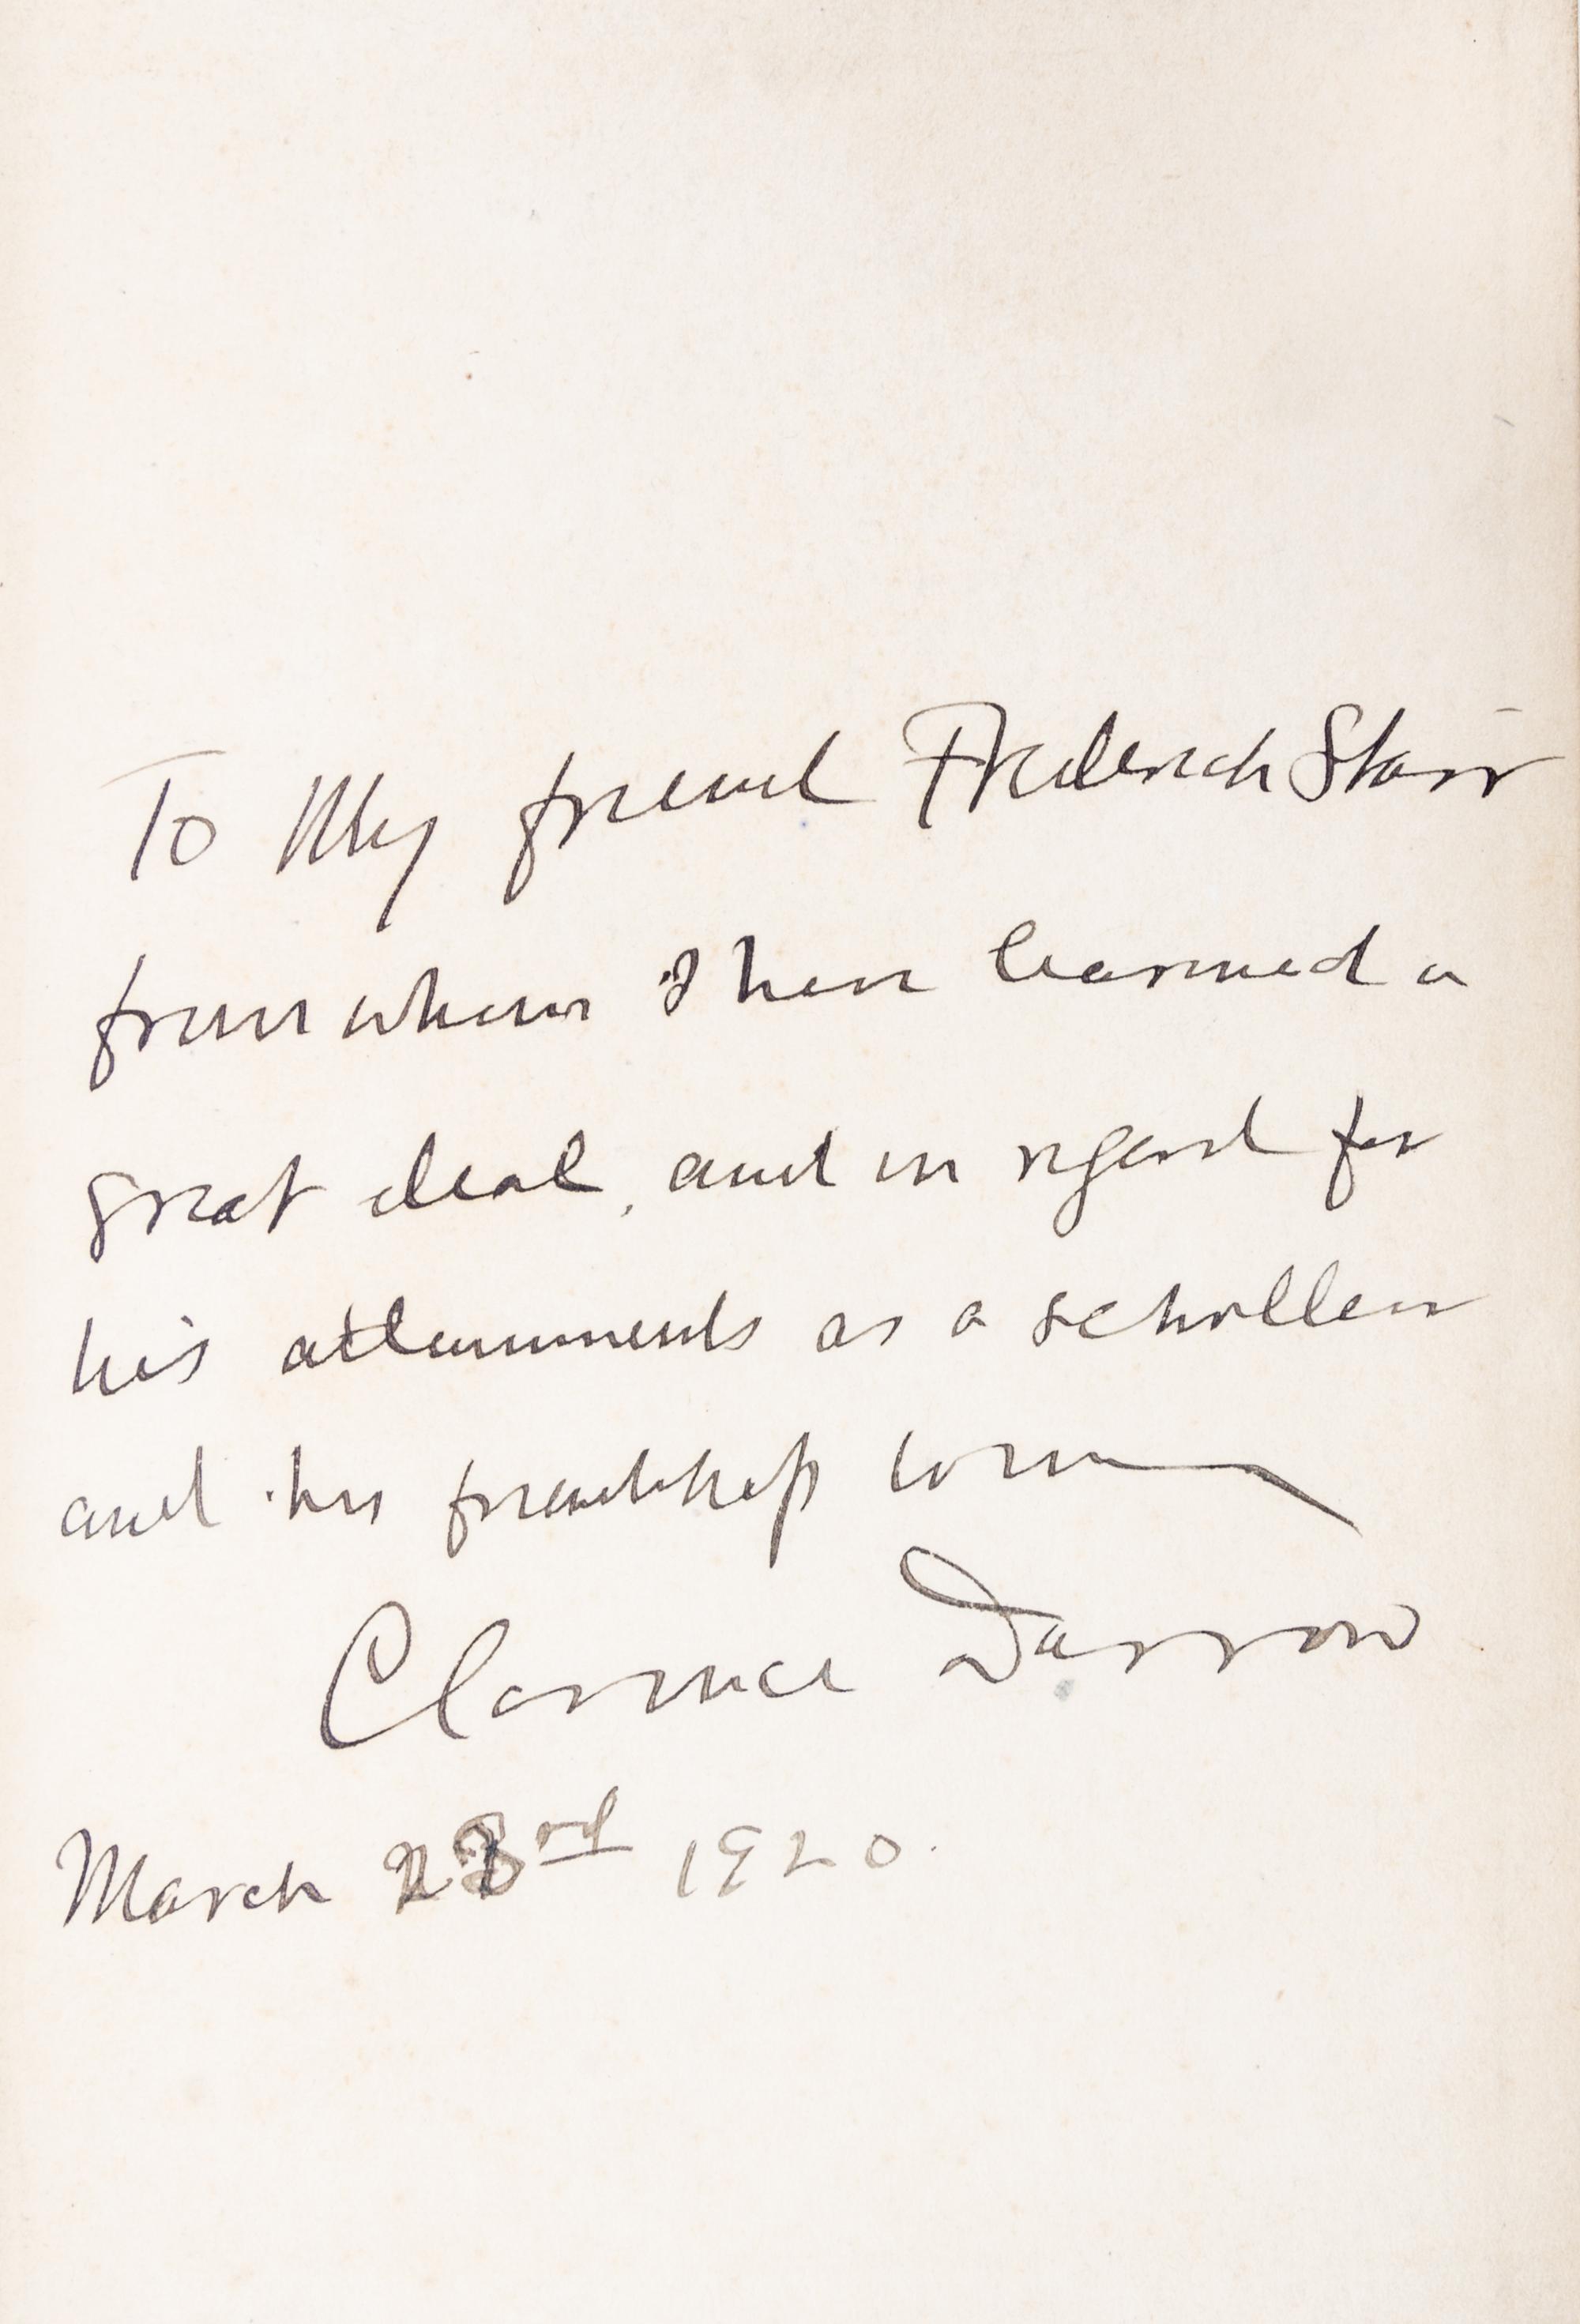 To My friend Frederick Starr
from whom I have learned a
great deal, and in regard for
his attainments as a schollar
and his friendship to me
Clarence Darrow
March 23rd 1920.